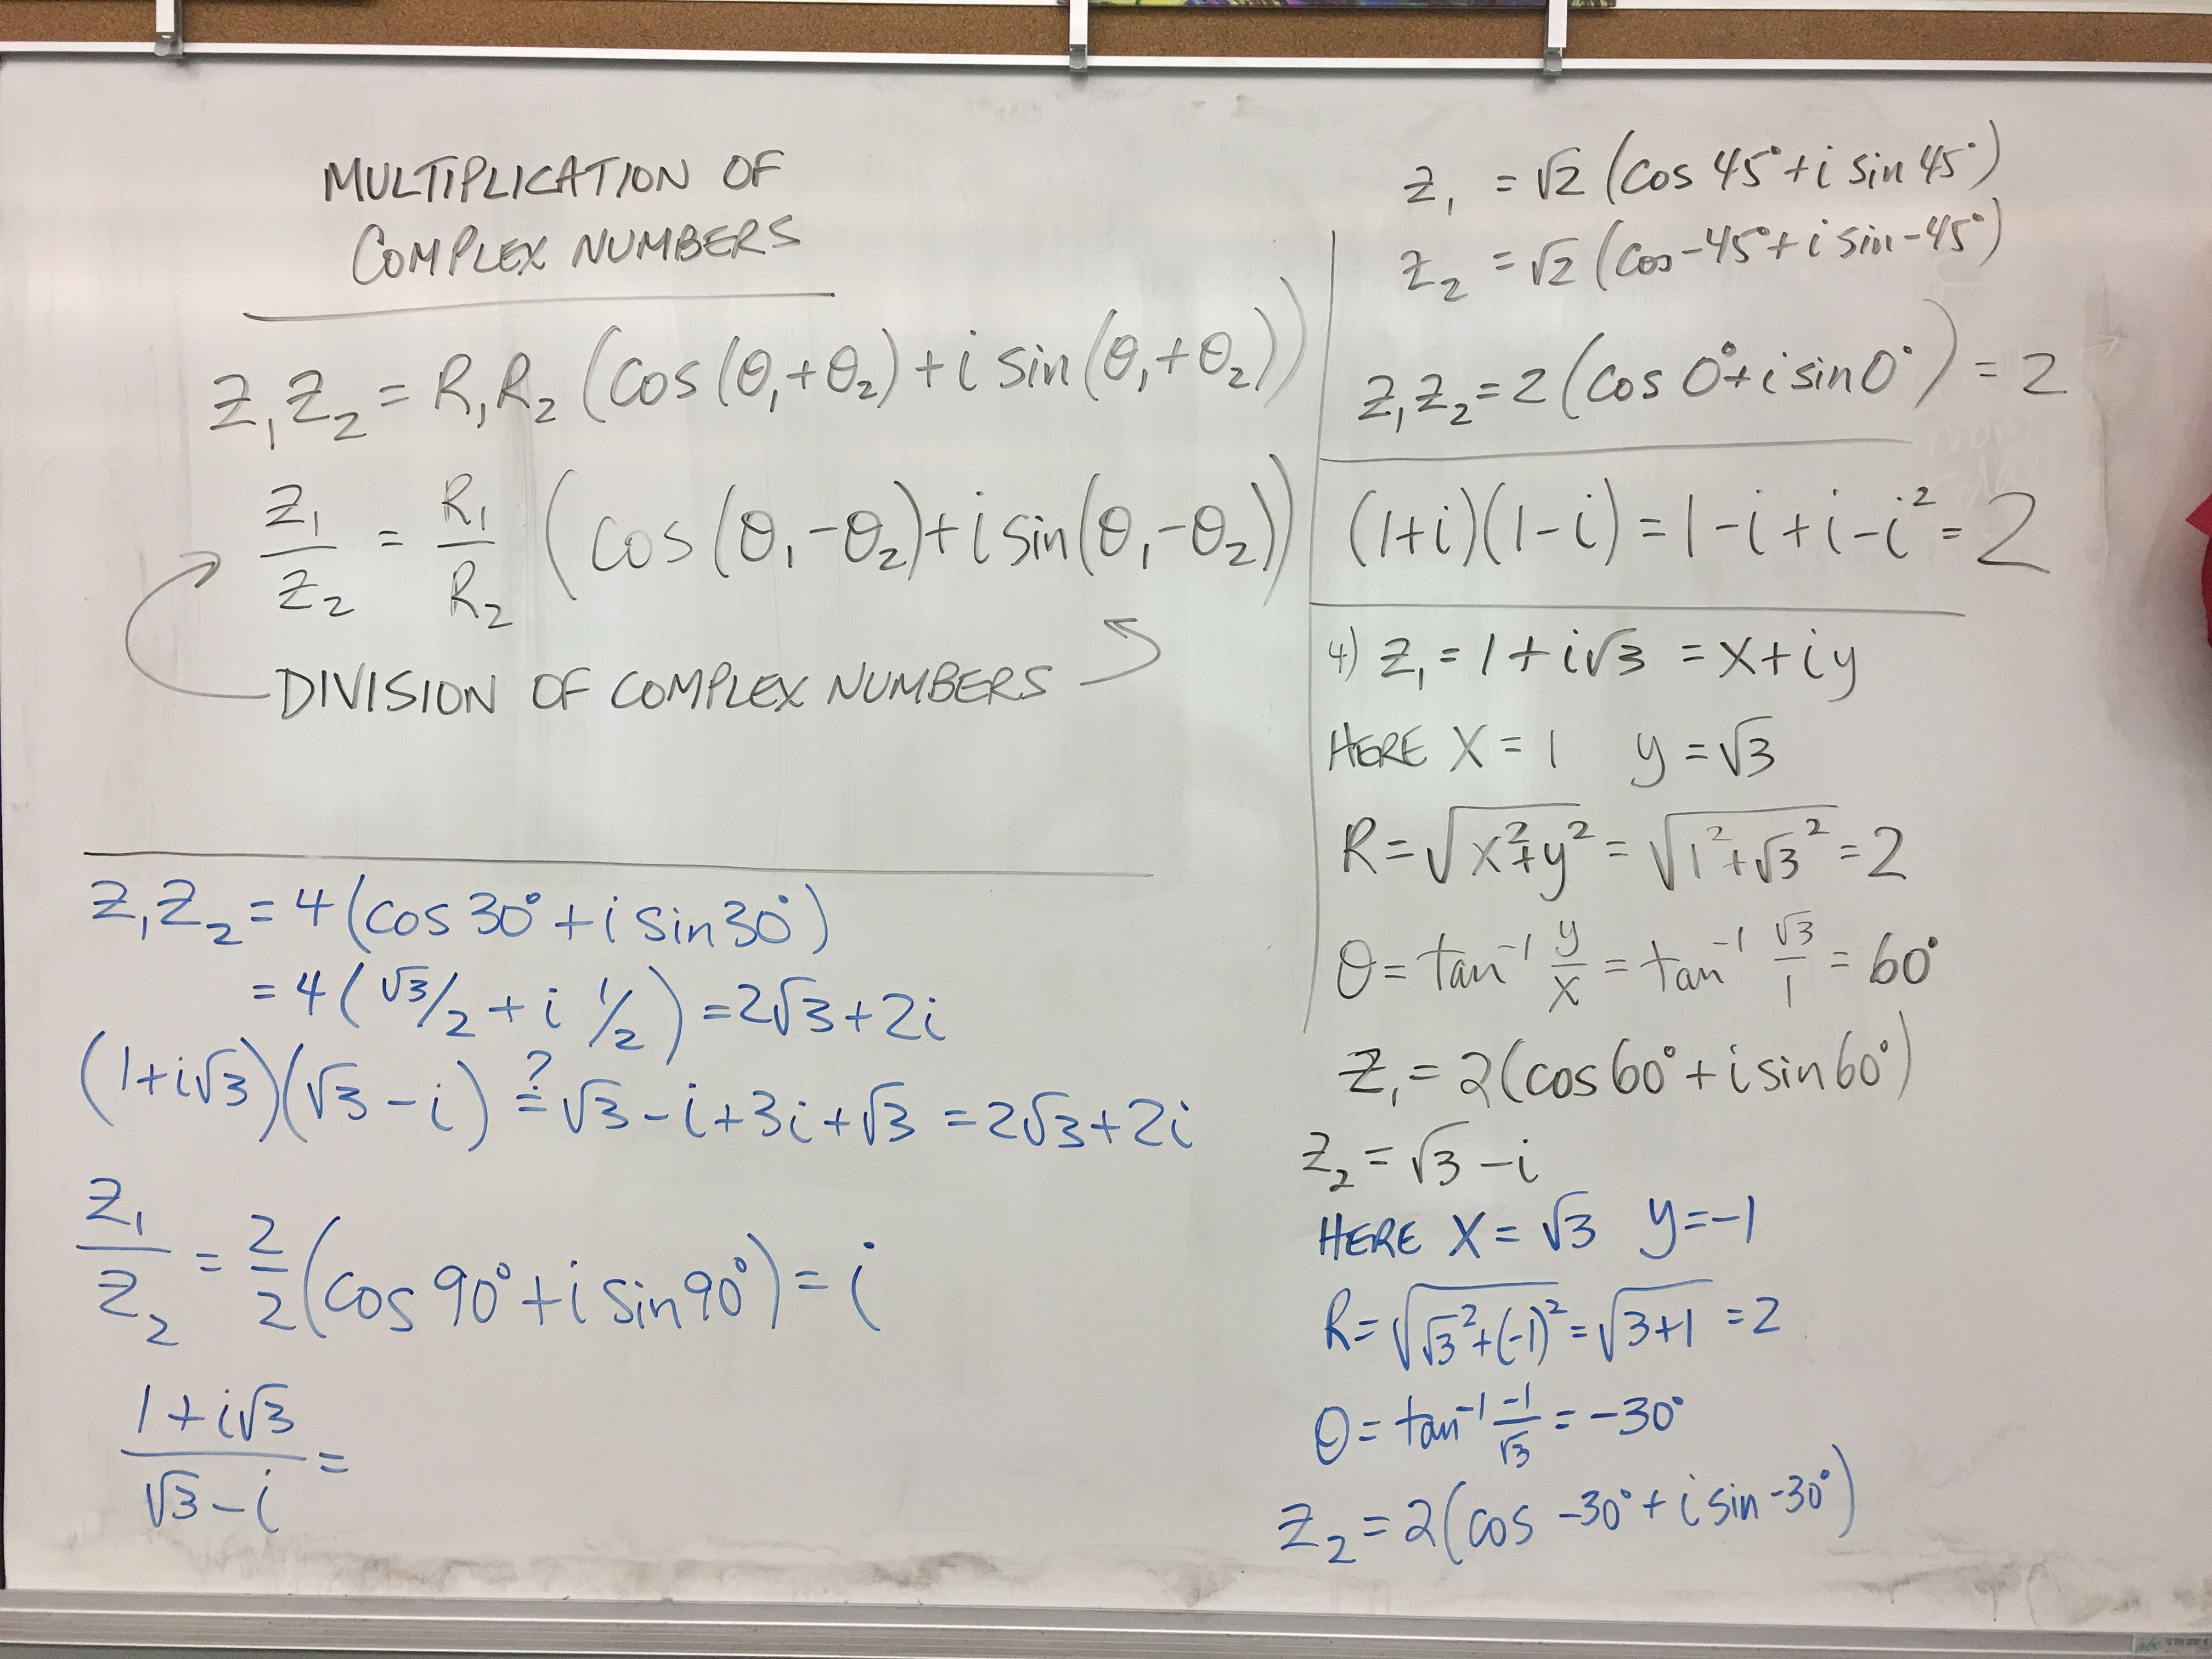 MULTIPLICATION OF
COMPLEX NUMBERS
Z₁Z₂ = R₁R₂ (cos(θ₁+θ₂)+i sin(θ₁+θ₂))
Z₁/Z₂ = R₁/R₂ (cos(θ₁-θ₂)+i sin(θ₁-θ₂))
DIVISION OF COMPLEX NUMBERS
Z₁Z₂ = 4(cos 30°+i sin 30°)
= 4(√3/2 + i 1/2) = 2√3+2i
(1+i√3)(√3-i) ≟ √3-i+3i+√3 = 2√3+2i
Z₁/Z₂ = 2/2 (cos 90°+i sin 90°) = i
(1+i√3)/(√3-i) =
Z₁ = √2 (cos 45°+i sin 45°)
Z₂ = √2 (cos -45°+i sin -45°)
Z₁Z₂ = 2(cos 0°+i sin 0°) = 2
(1+i)(1-i) = 1-i+i-i² = 2
4) Z₁ = 1+i√3 = x+iy
HERE X = 1 y = √3
R = √(x²+y²) = √(1²+√3²) = 2
θ = tan⁻¹ y/x = tan⁻¹ √3/1 = 60°
Z₁ = 2(cos 60°+i sin 60°)
Z₂ = √3-i
HERE X = √3 y = -1
R = √(√3²+(-1)²) = √(3+1) = 2
θ = tan⁻¹ -1/√3 = -30°
Z₂ = 2(cos -30°+i sin -30°)